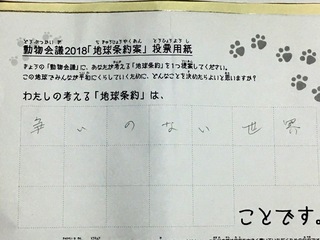 動物会議2018「地球条約案」投票用紙
きょうの「動物会議」に、あなたが考える「地球条約」を1つ提案してください。
この地球でみんなが平和にくらしていくために、どんなことを決めたらよいと思いますか?
わたしの考える「地球条約」は、
争いのない世界
ことです。